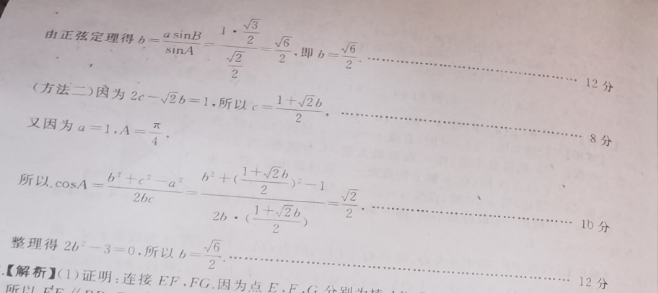 由正弦定理得 b=\frac{a\sin B}{\sin A}=\frac{1·\frac{\sqrt{3}}{2}}{\frac{\sqrt{2}}{2}}=\frac{\sqrt{6}}{2},即 b=\frac{\sqrt{6}}{2}. ………… 12 分
(方法二)因为 2c-\sqrt{2}b=1,所以 c=\frac{1+\sqrt{2}b}{2}, ………… 8 分
又因为 a=1,A=\frac{π}{4},
所以 cosA=\frac{b²+c²-a²}{2bc}=\frac{b²+(\frac{1+\sqrt{2}b}{2})²-1}{2b·(\frac{1+\sqrt{2}b}{2})}=\frac{\sqrt{2}}{2}, ………… 10 分
整理得 2b²-3=0,所以 b=\frac{\sqrt{6}}{2}. ………… 12 分
【解析】(1)证明:连接 EF,FG.因为点 E,F,G 分别为
所以